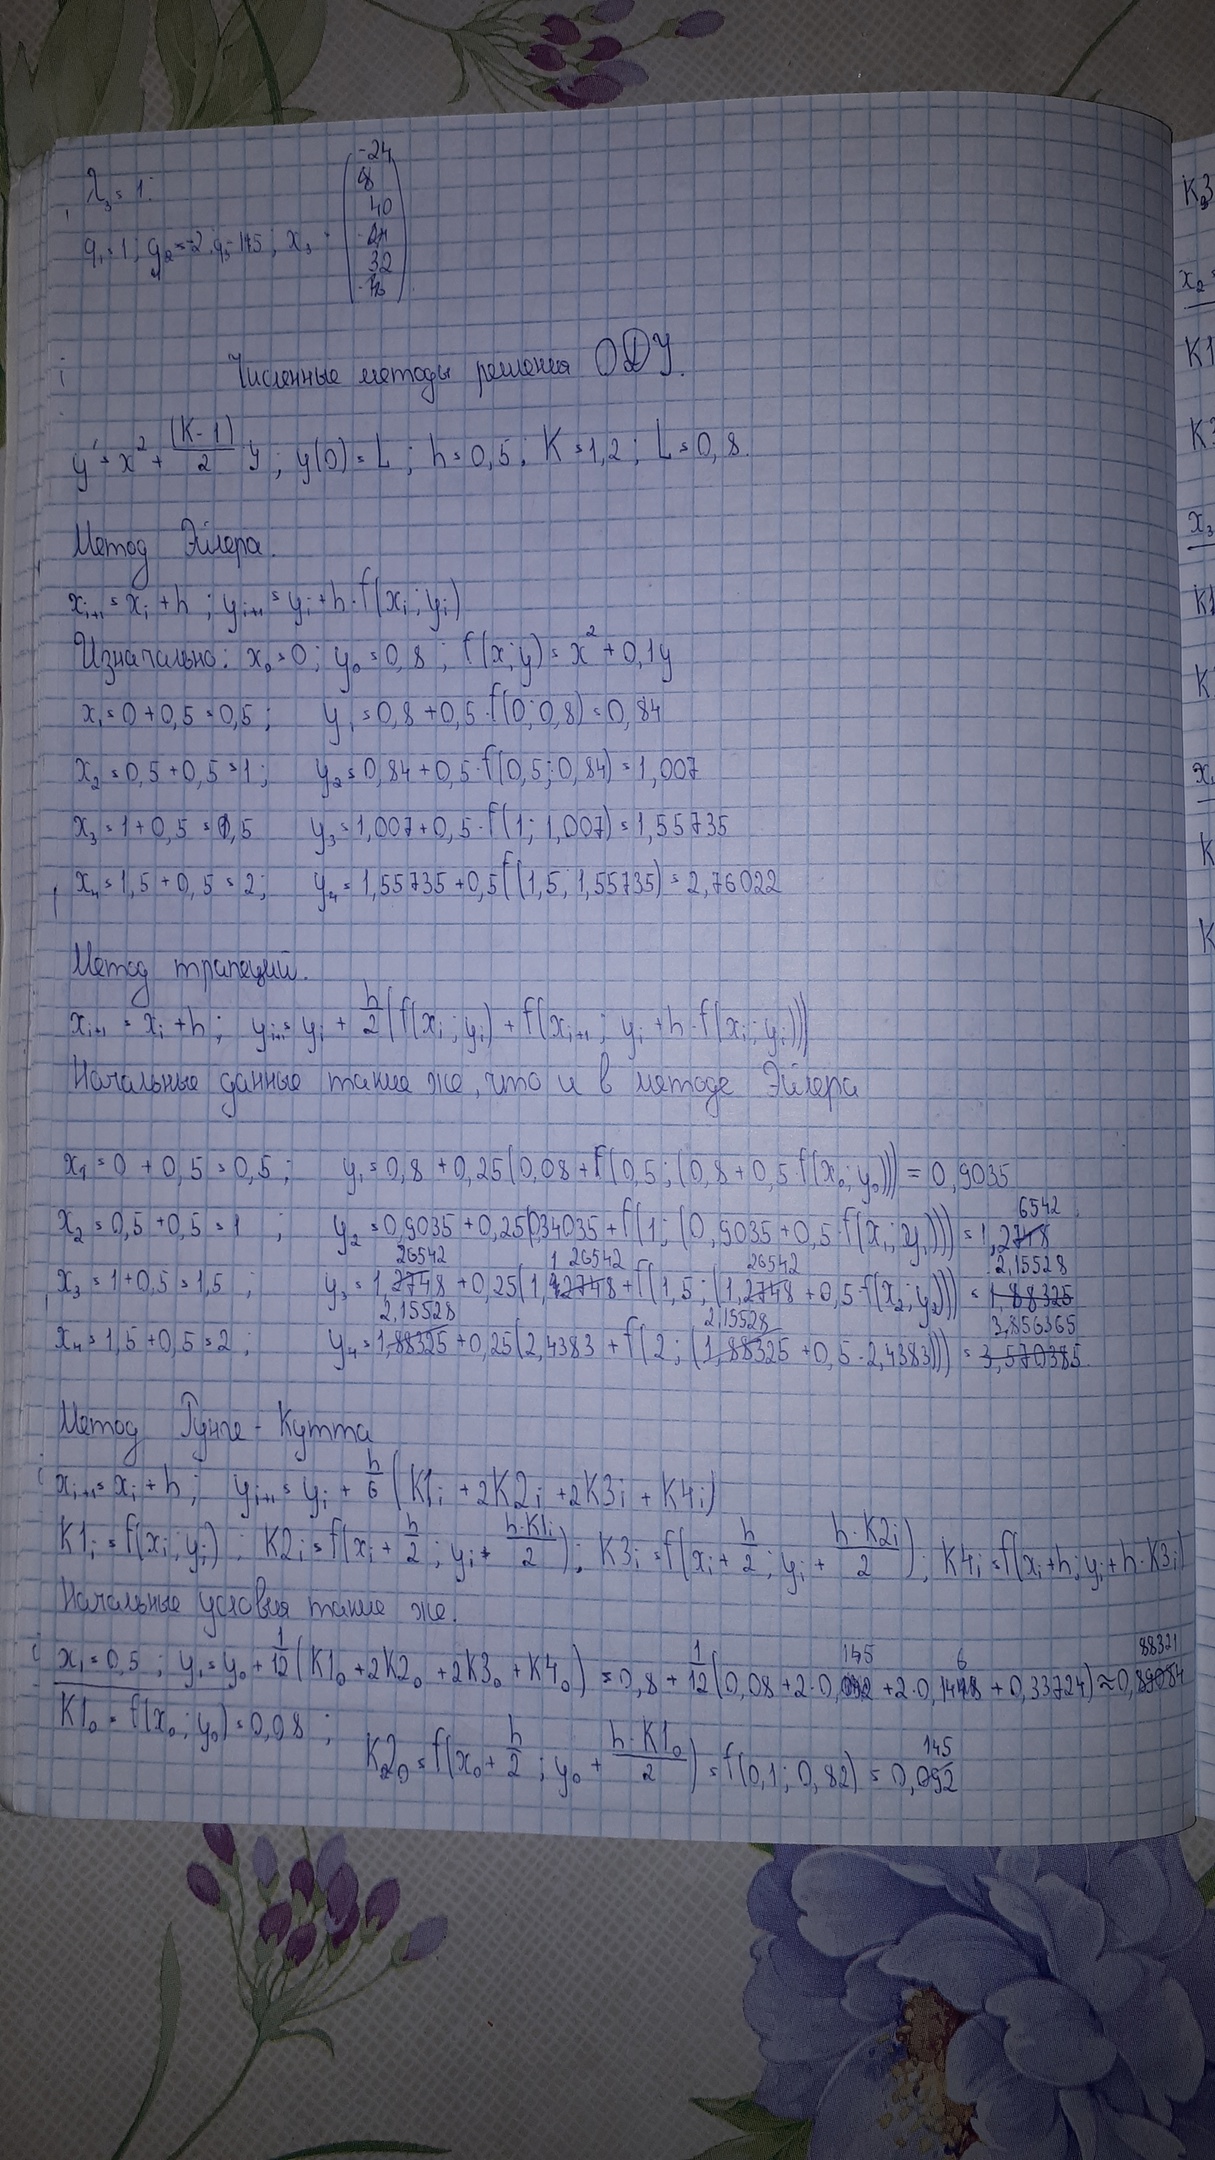 λ₃ = 1:
-24
8
40
32
q₁=1; q₂=-2; x₃ =
Численные методы решения ОДУ.
y' = x² + (K-1)/2 y; y(0) = L; h=0,5; K=1,2; L=0,8.
Метод Эйлера.
xᵢ₊₁ = xᵢ + h; yᵢ₊₁ = yᵢ + h·f(xᵢ; yᵢ)
Изначально: x₀=0; y₀=0,8; f(x;y) = x² + 0,1y
x₁=0+0,5=0,5; y₁=0,8+0,5·f(0;0,8)=0,84
x₂=0,5+0,5=1; y₂=0,84+0,5·f(0,5;0,84)=1,007
x₃=1+0,5=1,5 y₃=1,007+0,5·f(1;1,007)=1,55735
x₄=1,5+0,5=2; y₄=1,55735+0,5f(1,5;1,55735)=2,76022
Метод трапеций.
xᵢ₊₁ = xᵢ + h; yᵢ₊₁= yᵢ + h/2 (f(xᵢ; yᵢ) + f(xᵢ₊₁; yᵢ + h·f(xᵢ; yᵢ)))
Начальные данные такие же, что и в методе Эйлера
x₁=0+0,5=0,5; y₁=0,8+0,25(0,08+f(0,5;(0,8+0,5·f(x₀;y₀)))=0,9035
x₂=0,5+0,5=1; y₂=0,9035+0,25(0,34035+f(1;(0,9035+0,5·f(x₁;y₁)))=1,26542
x₃=1+0,5=1,5; y₃=1,26542+0,25(1,126542+f(1,5;(1,26542+0,5·f(x₂;y₂)))=2,15528
x₄=1,5+0,5=2; y₄=2,15528+0,25(2,4383+f(2;(2,15528+0,5·2,4383)))=3,856365
Метод Рунге-Кутта
xᵢ₊₁=xᵢ+h; yᵢ₊₁=yᵢ + h/6 (K1ᵢ+2K2ᵢ+2K3ᵢ+K4ᵢ)
K1ᵢ=f(xᵢ;yᵢ); K2ᵢ=f(xᵢ+h/2; yᵢ+h·K1ᵢ/2); K3ᵢ=f(xᵢ+h/2; yᵢ+h·K2ᵢ/2); K4ᵢ=f(xᵢ+h; yᵢ+h·K3ᵢ)
Начальные условия такие же.
x₁=0,5; y₁=y₀+1/12(K1₀+2K2₀+2K3₀+K4₀)=0,8+1/12(0,08+2·0,145+2·0,146+0,33724)≈0,88321
K1₀=f(x₀;y₀)=0,08; K2₀=f(x₀+h/2; y₀+h·K1₀/2)=f(0,1;0,82)=0,145
K3
x₂=
K1
x₃
K1
K
K
K